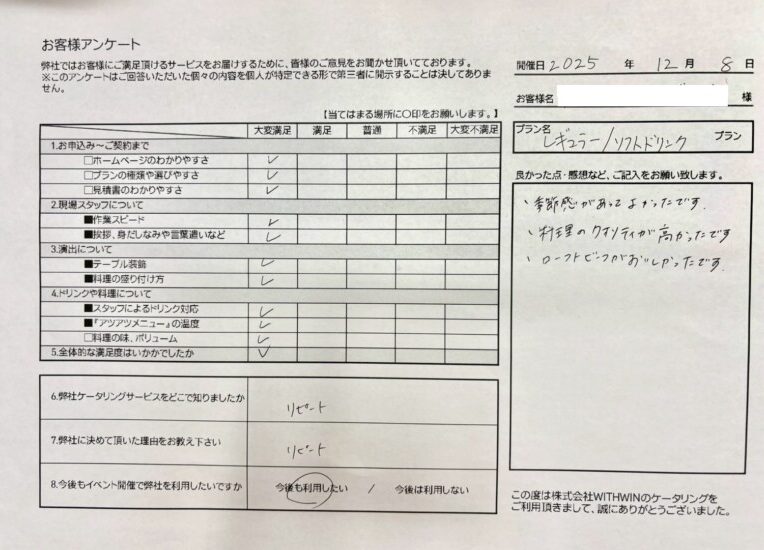 お客様アンケート
弊社ではお客様にご満足頂けるサービスをお届けするために、皆様のご意見をお聞かせ頂いてております。
※このアンケートはご回答いただいた個々の内容を個人が特定できる形で第三者に開示することは決してありま
せん。
【当てはまる場所に〇印をお願いします。】
大変満足 満足 普通 不満足 大変不満足
1.お申込み～ご契約まで
□ホームページのわかりやすさ ✓
□プランの種類や選びやすさ ✓
□見積書のわかりやすさ ✓
2.現場スタッフについて
■作業スピード ✓
■挨拶、身だしなみや言葉遣いなど ✓
3.演出について
■テーブル装飾 ✓
■料理の盛り付け方 ✓
4.ドリンクや料理について
■スタッフによるドリンク対応 ✓
■『アツアツメニュー』の温度 ✓
□料理の味、ボリューム ✓
5.全体的な満足度はいかがでしたか ✓
6.弊社ケータリングサービスをどこで知りましたか リピート
7.弊社に決めて頂いた理由をお教え下さい リピート
8.今後もイベント開催で弊社を利用したいですか 今後も利用したい / 今後は利用しない
開催日 2025 年 12 月 8 日
お客様名 様
プラン名 レギュラー/ソフトドリンク プラン
良かった点・感想など、ご記入をお願い致します。
・季節感があってよかったです.
・料理のクオリティが高かったです
・ローストビーフがおいしかったです.
この度は株式会社WITHWINのケータリングを
ご利用頂きまして、誠にありがとうございました。